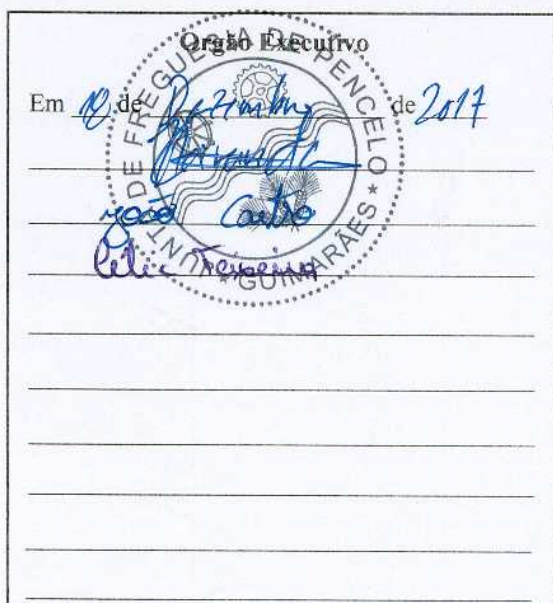 Orgão Executivo
Em de Dezembro de 2017
João Castro
Célia Teixeira
JUNTA DE FREGUESIA DE PENCELO * GUIMARÃES *